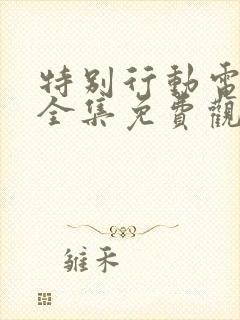 特別行動電
全集免費觀
雒禾